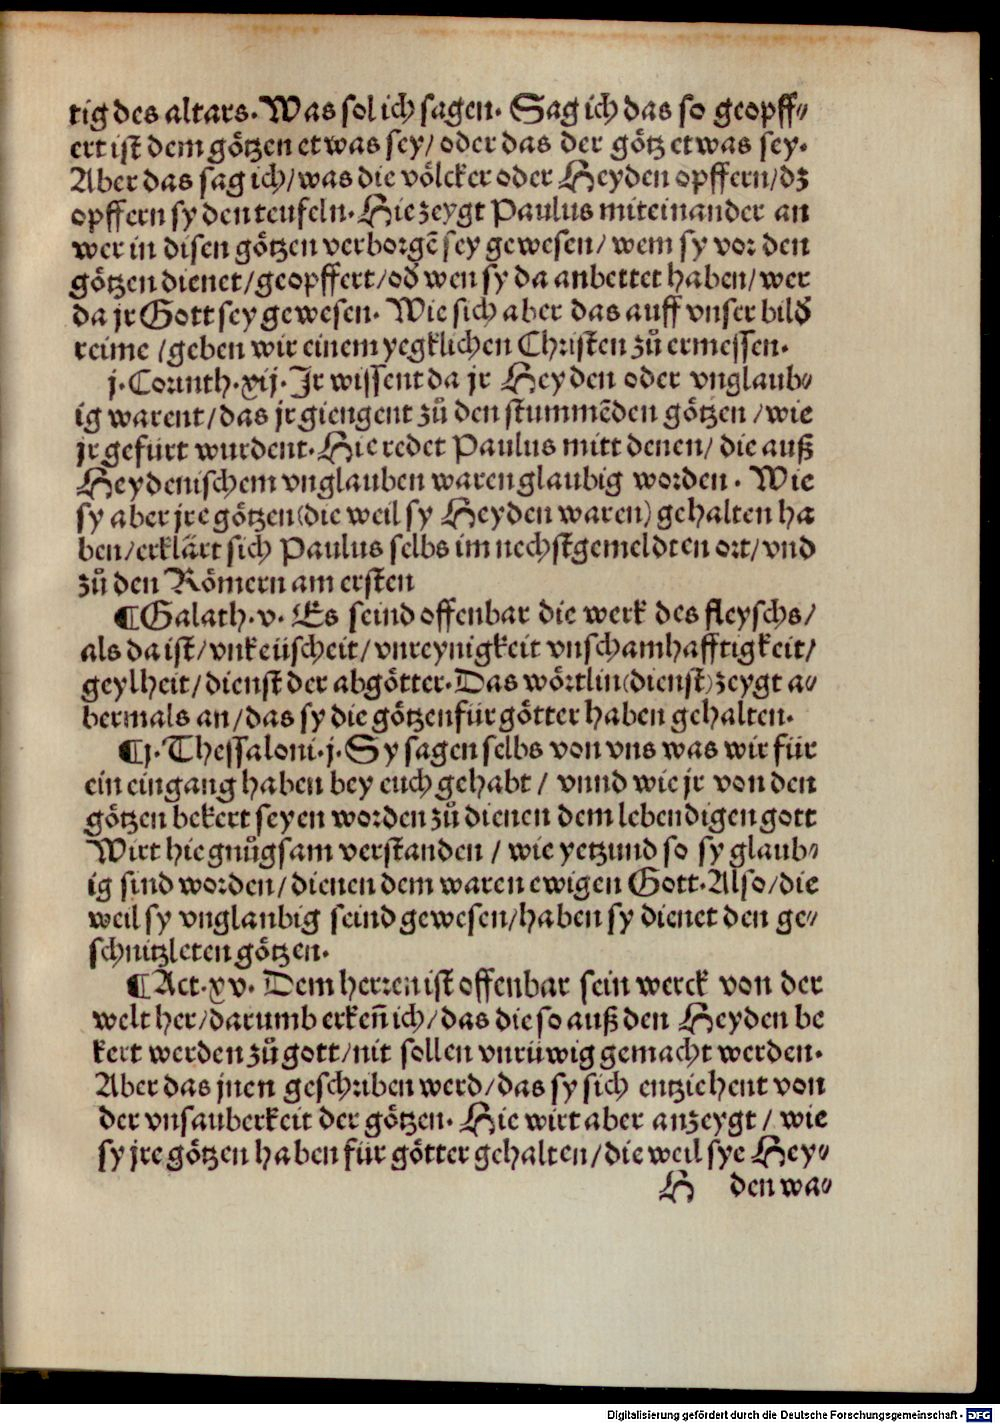 tig des altars. Was sol ich sagen. Sag ich das so geopff⸗
ert ist dem götzen etwas sey/ oder das der götz etwas sey.
Aber das sag ich/ was die völcker oder Heyden opffern/ dz
opffern sy den teufeln. Hie zeygt Paulus miteinander an
wer in disen götzen verborgē sey gewesen/ wem sy vor den
götzen dienet/ geopffert/ od̕ wen sy da anbettet haben/ wer
da jr Gott sey gewesen. Wie sich aber das auff vnser bild̕
reime/ geben wir einem yegklichen Christen zů ermessen.
j. Corinth. xij. Jr wissent da jr Heyden oder vnglaub⸗
ig warent/ das jr giengent zů den stummēden götzen/ wie
jr gefürt wurdent. Hie redet Paulus mitt denen/ die auß
Heydenischem vnglauben waren glaubig worden. Wie
sy aber jre götzen (die weil sy Heyden waren) gehalten ha
ben/ erklärt sich Paulus selbs im nechstgemeldten ort/ vnd
zů den Römern am ersten
¶Galath. v. Es seind offenbar die werk des fleyschs/
als da ist/ vnkeüscheit/ vnreynigkeit vnschamhafftigkeit/
geylheit/ dienst der abgötter. Das wörtlin (dienst) zeygt a⸗
bermals an/ das sy die götzen für götter haben gehalten.
¶j. Thessaloni. j. Sy sagen selbs von vns was wir für
ein eingang haben bey euch gehabt/ vnnd wie jr von den
götzen bekert seyen worden zů dienen dem lebendigen gott
Wirt hie gnůgsam verstanden/ wie yetzund so sy glaub⸗
ig sind worden/ dienen dem waren ewigen Gott. Also/ die
weil sy vnglaubig seind gewesen/ haben sy dienet den ge⸗
schnitzleten götzen.
¶Act. xv. Dem herren ist offenbar sein werck von der
welt her/ darumb erken̄ ich/ das die so auß den Heyden be
kert werden zů gott/ nit sollen vnrüwig gemacht werden.
Aber das jnen geschriben werd/ das sy sich entziehent von
der vnsauberkeit der götzen. Hie wirt aber anzeygt/ wie
sy jre götzen haben für götter gehalten/ die weil sye Hey⸗
H den wa⸗
Digitalisierung gefördert durch die Deutsche Forschungsgemeinschaft - DFG